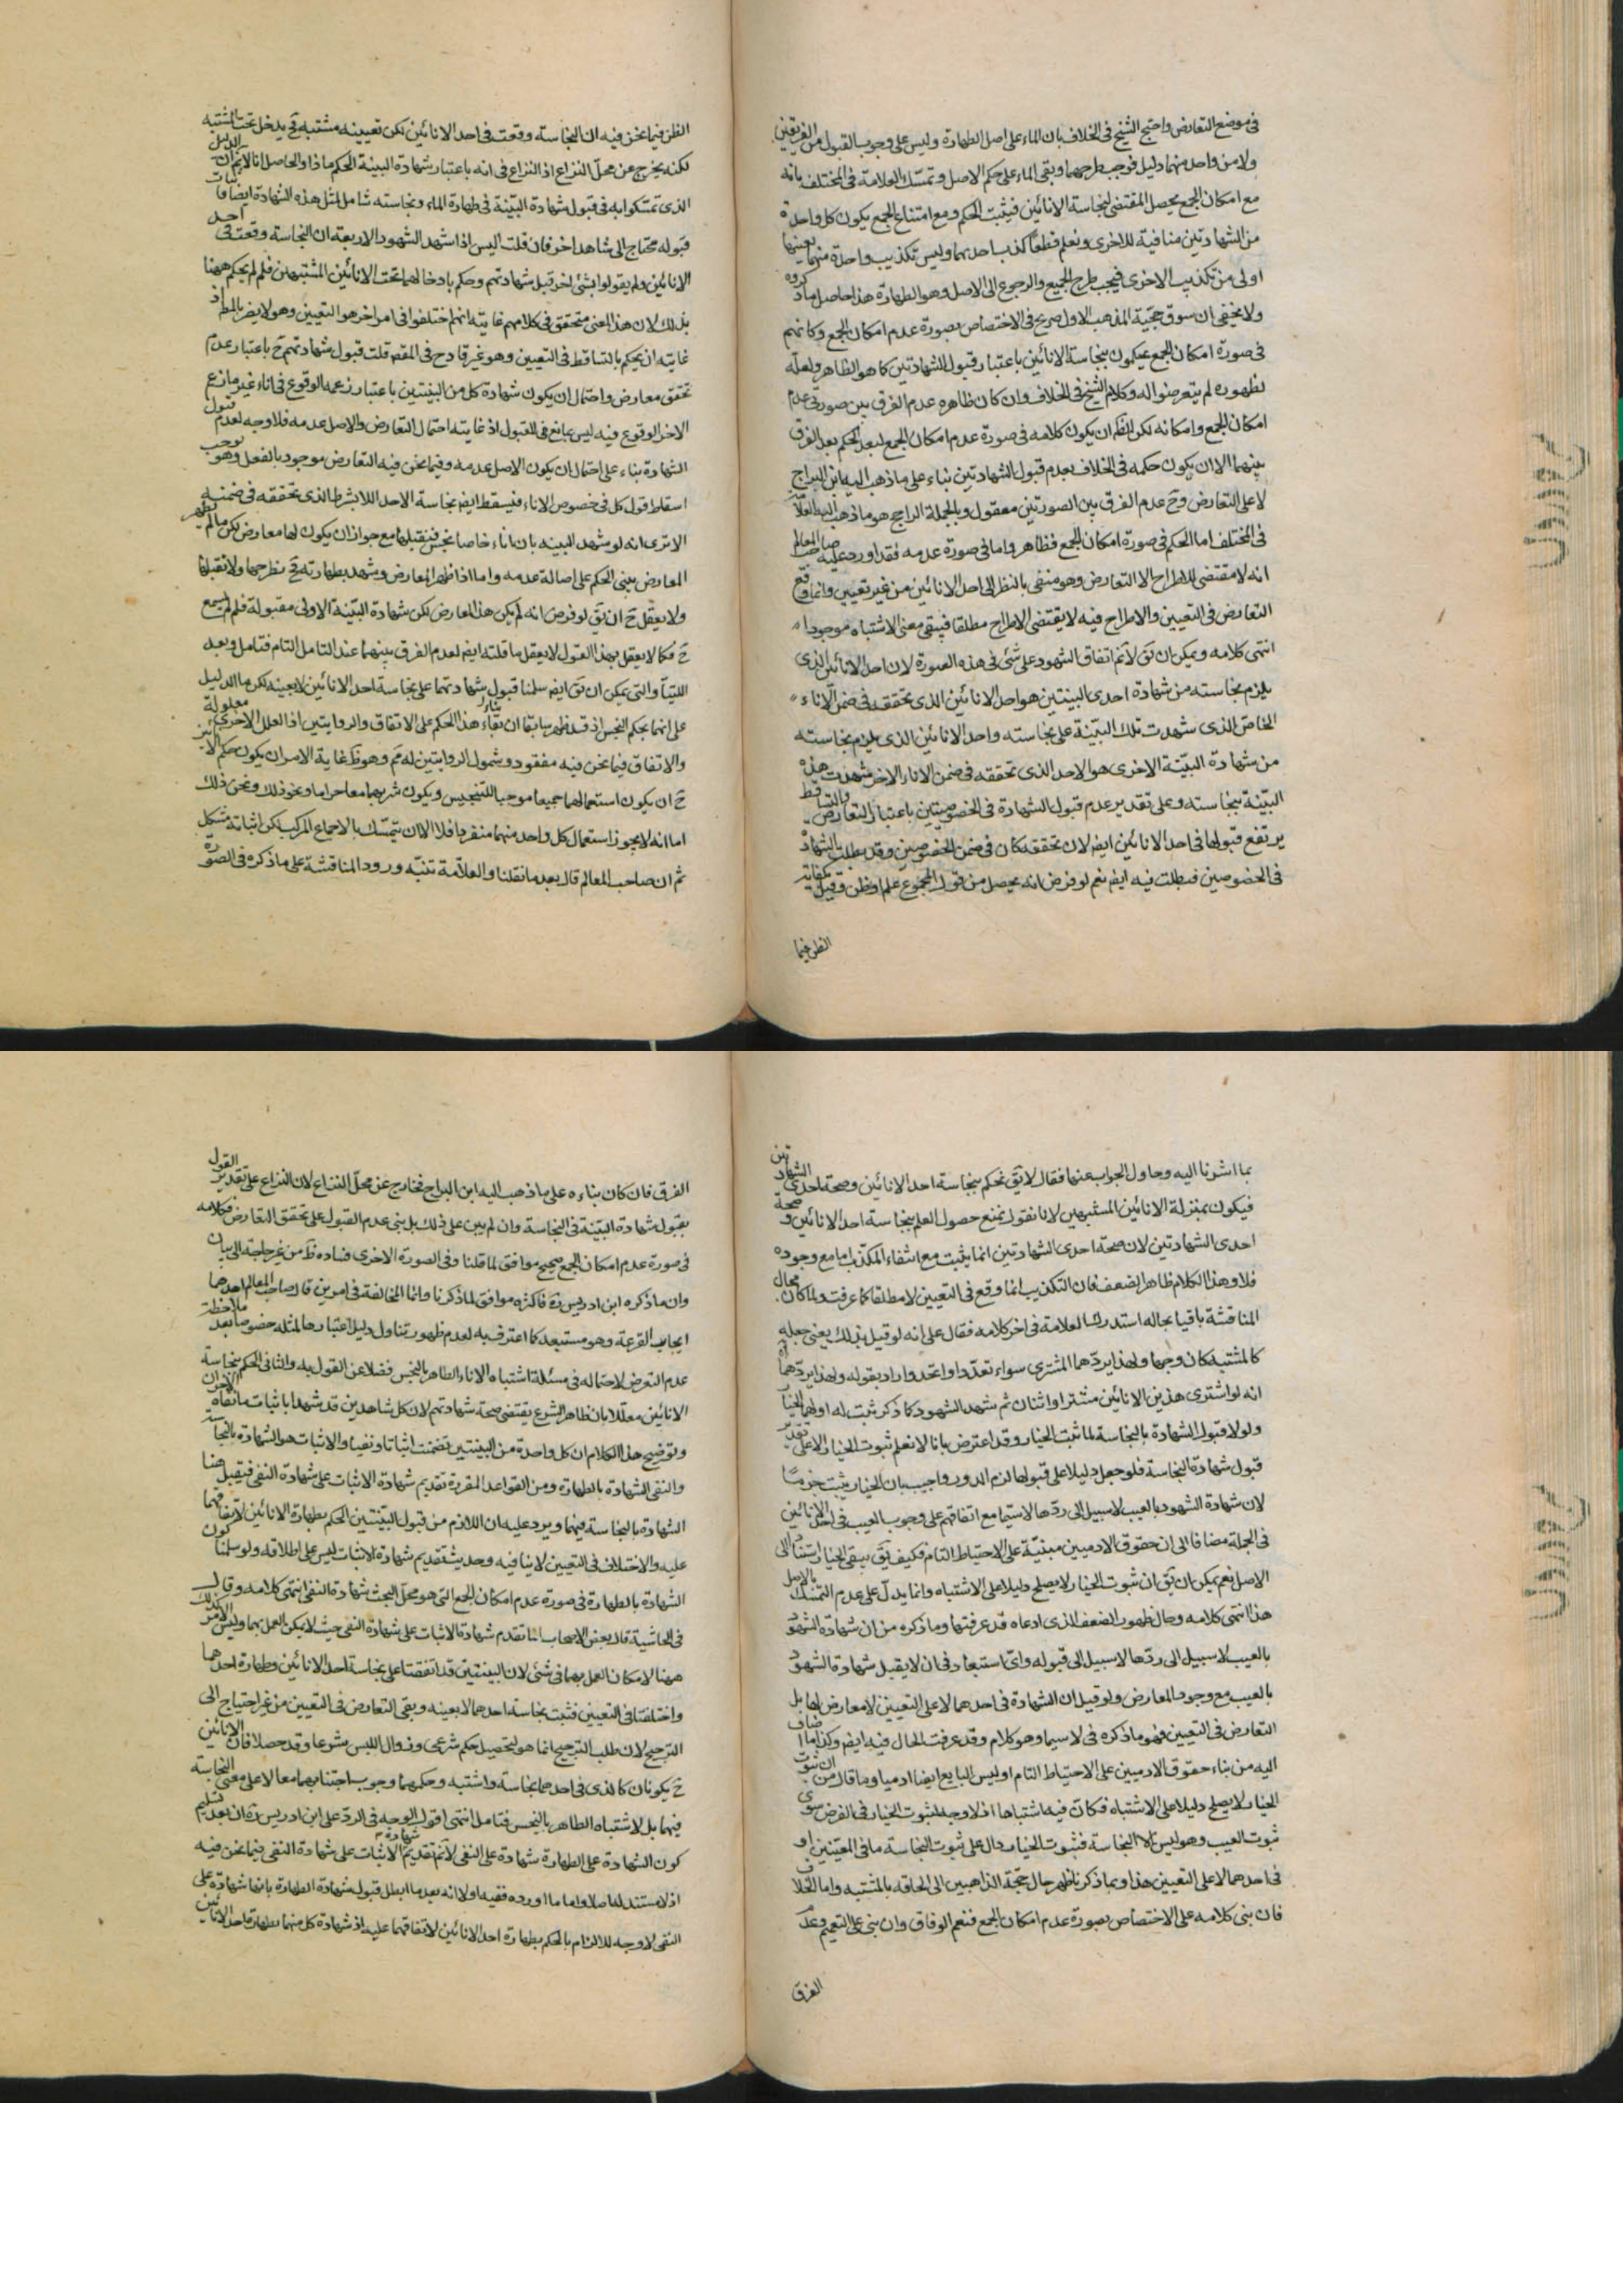 فى موضع التعارض واحتج الشيخ فى الخلاف بان الماء على اصل الطهارة وليس على وجوب القبول من الفريقين
ولا من واحد منهما دليل فوجب طرحهما وبقى الماء على حكم الاصل وتمسك العلامة فى المختلف بانه
مع امكان الجمع يحصل المقتضى لنجاسة الانائين فيثبت الحكم ومع امتناع الجمع يكون كل واحدة
من الشهادتين منافية للاخرى ونعلم قطعا كذب احديهما وليس تكذيب واحدة منهما بعينها
اولى من تكذيب الاخرى فيجب طرح الجميع والرجوع الى الاصل وهو الطهارة هذا حاصل ما ذكروه
ولا يخفى ان سوق حجية المذهب الاول صريح فى الاختصاص بصورة عدم امكان الجمع وكانهم
فى صورة امكان الجمع يحكمون بنجاسة الانائين باعتبار قبول الشهادتين كما هو الظاهر ولعله
لظهوره لم يتعرضوا له وكلام الشيخ فى الخلاف وان كان ظاهره عدم الفرق بين صورتى عدم
امكان الجمع وامكانه لكن الظ ان يكون كلامه فى صورة عدم امكان الجمع لبعد الحكم بعد الفرق
بينهما الا ان يكون حكمه فى الخلاف بعدم قبول الشهادتين بناء على ما ذهب اليه ابن البراج
لا على التعارض وح عدم الفرق بين الصورتين معقول وبالجملة الراجح هو ما ذهب اليه العلا
فى المختلف اما الحكم فى صورة امكان الجمع فظاهر واما فى صورة عدمه فقد اورد عليه صاحب المعالم
انه لا مقتضى للاطراح الا التعارض وهو منفى بالنظر الى احد الانائين من غير تعيين وانما وقع
التعارض فى التعيين والاطراح فيه لا يقتضى الاطراح مطلقا فيبقى معنى الاشتباه موجودا
انتهى كلامه ويمكن ان يق لا نم اتفاق الشهود على شئ فى هذه الصورة لان احد الانائين الذى
يلزم نجاسته من شهادة احدى البينتين هو احد الانائين الذى تحققه فى ضمن الاناء
الخاص الذى شهدت تلك البينة على نجاسته واحد الانائين الذى يلزم نجاسته
من شهادة البينة الاخرى هو الاحد الذى تحققه فى ضمن الاناء الاخر شهدت هذه
البينة بنجاسته وعلى تقدير عدم قبول الشهادة فى الخصوصيتين باعتبار التعارض والتساقط
يرتفع قبولها فى احد الانائين ايض لان تحققه كان فى ضمن الخصوصين وقد بطلت الشهادة
فى الخصوصين فبطلت فيه ايض نعم لو فرض انه يحصل من قول المجموع علم او ظن وقيل بكفاية
الظن فيما
الظن فيما نحن فيه ان النجاسة وقعت فى احد الانائين لكن تعيينه مشتبه فح يدخل تحت المشتبه
لكنه يخرج عن محل النزاع اذ النزاع فى انه باعتبار شهادة البينة الحكم ماذا والحاصل انا لا نم ان الدليل
الذى تمسكوا به فى قبول شهادة البينة فى طهارة الماء ونجاسته شامل لمثل هذه الشهادة ايضا فاثبات
قبوله محتاج الى شاهد اخر فان قلت اليس اذا شهد الشهود الاربعة ان النجاسة وقعت فى احد
الانائين ولم يقولوا بشئ اخر قبل شهادتهم وحكم بادخالهما تحت الانائين المشتبهين فلم لم يحكم ههنا
بذلك لان هذا المعنى متحقق فى كلامهم غايته انهم اختلفوا فى امر اخر هو التعيين وهو لا يضر بالمط اذ
غايته ان يحكم بالتساقط فى التعيين وهو غير قادح فى المقصود قلت قبول شهادتهم ح باعتبار عدم
تحقق معارض واحتمال ان يكون شهادة كل من البينتين باعتبار زعمه الوقوع فى اناء غير ما زعم
الاخر الوقوع فيه ليس بمانع فى القبول اذ غايته احتمال التعارض والاصل عدمه فلا وجه لعدم قبول
الشهادة بناء على احتمال ان يكون الاصل عدمه وفيما نحن فيه التعارض موجود بالفعل وهو يوجب
اسقاط قول كل فى خصوص الاناء فيسقط ايض نجاسة الاحد اللابشرط الذى تحققه فى ضمنه
الا ترى انه لو شهد البينه بان اناء خاصا نجس فنقبلها مع جواز ان يكون لها معارض لكن ما لم يظهر
المعارض يبنى الحكم على اصالة عدمه واما اذا ظهر المعارض وشهد بطهارته فح نطرحها ولا نقبلها
ولا يعقل ح ان يق لو فرض انه لم يكن هذا المعارض لكن شهادة البينة الاولى مقبولة فلم لم يسمع
ح فكما لا يعقل بهذا القول لا يعقل ما قلته ايض لعدم الفرق بينهما عند التامل التام فتامل وبعد
اللتيا والتى يمكن ان يق ايض سلمنا قبول شهادتهما على نجاسة احد الانائين لا بعينه لكن ما الدليل
على انهما بحكم النجس اذ قد ظهر سابقا ان بناء هذا الحكم على الاتفاق والروايتين اذ العلل الاخرى معلولة
والاتفاق فيما نحن فيه مفقود وشمول الروايتين له مم وهو ظ غاية الامر ان يكون حكم الانائين
ح ان يكون استعمالهما جميعا موجبا للتنجيس ويكون شربهما معا حراما ونحو ذلك ونحن ذلك
اما انه لا يجوز استعمال كل واحد منهما منفردا فلا الا ان يتمسك بالاجماع المركب لكن اثباته مشكل
ثم ان صاحب المعالم قال بعد ما نقلنا والعلامة تنبه ورود المناقشة على ما ذكره فى الصورة
بما اشرنا اليه وحاول الجواب عنها فقال لا يق نحكم بنجاسة احد الانائين وصحة احدى الشهادتين
فيكون بمنزلة الانائين المشتبهين لانا نقول نمنع حصول العلم بنجاسة احد الانائين وصحة
احدى الشهادتين لان صحة احدى الشهادتين انما يثبت مع انتفاء المكذب اما مع وجوده
فلا وهذا الكلام ظاهر الضعف فان التكذيب انما وقع فى التعيين لا مطلقا كما عرفت ولما كان مجال
المناقشة باقيا بحاله استدركها العلامة فى اخر كلامه فقال على انه لو قيل بذلك يعنى جعله
كالمشتبه كان وجها ولهذا يردهما المشترى سواء تعددا او اتحد واراد بقوله ولهذا يردهما
انه لو اشترى هذين الانائين مشتر او اثنان ثم شهد الشهود كما ذكر ثبت له او لهما الخيار
ولولا قبول الشهادة بالنجاسة لما ثبت الخيار وقد اعترض بانا لا نعلم ثبوت الخيار الا على تقدير
قبول شهادة النجاسة فلو جعل دليلا على قبولها لزم الدور واجيب بان الخيار يثبت جزما
لان شهادة الشهود بالعيب لا سبيل الى ردها لا سيما مع اتفاقهم على وجوب العيب فى احد الانائين
فى الجملة مضافا الى ان حقوق الادميين مبنية على الاحتياط التام فكيف يق يبقى الخيار استنادا الى
الاصل نعم يمكن ان يق ان ثبوت الخيار لا يصلح دليلا على الاشتباه وانما يدل على عدم التمسك بالاصل
هذا انتهى كلامه وحال ظهور الضعف الذى ادعاه قد عرفتها وما ذكره من ان شهادة الشهود
بالعيب لا سبيل الى ردها لا سبيل الى قبوله واى استبعاد فى ان لا يقبل شهادة الشهود
بالعيب مع وجود المعارض ولو قيل ان الشهادة فى احدهما لا على التعيين لا معارض لها بل
التعارض فى التعيين فهو ما ذكره فى لا سيما وهو كلام وقد عرفت الحال فيه ايض وكذا ما اضاف
اليه من بناء حقوق الادميين على الاحتياط التام اوليس البايع ايضا ادميا وما قال من ان ثبوت
الخيار لا يصلح دليلا على الاشتباه فكان فيه اشتباها اذ لا وجه لثبوت الخيار فى الفرض سوى
ثبوت العيب وهو ليس الا النجاسة فثبوت الخيار دال على ثبوت النجاسة ما فى المعينين او
فى احدهما لا على التعيين هذا وبما ذكرنا ظهر حال حجة الذاهبين الى الحاقه بالمشتبه واما الخلاف
فان بنى كلامه على الاختصاص بصورة عدم امكان الجمع فنعم الوفاق وان بنى على التعميم وعدم
الفرق
الفرق فان كان بناءه على ما ذهب اليه ابن البراج فخارج عن محل النزاع لان النزاع على تقدير القول
بقبول شهادة البينة فى النجاسة وان لم يبن على ذلك بل بنى عدم القبول على تحقق التعارض فكلامه
فى صورة عدم امكان الجمع صحيح موافق لما قلنا وفى الصورة الاخرى فساده ظ من غير حاجة الى بيان
وان ما ذكره ابن ادريس ره فاكثره موافق لما ذكرنا وانما المخالفة فى امرين قال صاحب المعالم احدهما
ايجاب القرعة وهو مستبعد كما اعترف به لعدم ظهور تناول دليل اعتبارها لمثله خصوصا بعد ملاحظة
عدم التعرض لاحتماله فى مسئلة اشتباه الاناء الطاهر بالنجس فضلا عن القول به والثانى الحكم بنجاسة
الانائين معللا بان ظاهر الشرع يقتضى صحة شهادتهم لان كل شاهدين قد شهدا باثبات ما نفاه الاخران
وتوضيح هذا الكلام ان كل واحدة من البينتين تضمنت اثباتا ونفيا والاثبات هو الشهادة بالنجاسة
والنفى الشهادة بالطهارة ومن القواعد المقررة تقديم شهادة الاثبات على شهادة النفى فيقبل هنا
الشهادة بالنجاسة فيهما ويرد عليه ان اللازم من قبول البينتين الحكم بطهارة الانائين لاتفاقهما
عليه والاختلاف فى التعيين لا ينافيه وحديث تقديم شهادة الاثبات ليس على اطلاقه ولو سلمنا كون
الشهادة بالطهارة فى صورة عدم امكان الجمع التى هو محل البحث شهادة النفى انتهى كلامه وقال
فى الحاشية قال بعض الاصحاب انا تقدم شهادة الاثبات على شهادة النفى حيث لا يمكن العمل بهما وليس الامر كذلك
ههنا لامكان العمل بهما فى شئ لان البينتين قد اتفقتا على نجاسة احد الانائين وطهارة احدهما
واختلفتا فى التعيين فثبت نجاسة احدهما لا بعينه وبقى التعارض فى التعيين من غير احتياج الى
الترجيح لان طلب الترجيح انما هو لتحصيل حكم شرعى وزوال اللبس شرعا وقد حصلا فان الانائين
ح يكونان كالذى فى احدهما نجاسة واشتبه وحكمهما وجوب اجتنابهما معا لا على معنى النجاسة
فيهما بل لاشتباه الطاهر بالنجس فتامل انتهى اقول الوجه فى الرد على ابن ادريس ره ان بعد تسليم
كون الشهادة على الطهارة شهادة على النفى لا نم تقديم شهادة الاثبات على شهادة النفى فيما نحن فيه
اذ لا مستند لها اصلا واما ما اورده ففيه اولا انه بعد ما ابطل قبول شهادة الطهارة بانها شهادة على
النفى لا وجه للالزام بالحكم بطهارة احد الانائين لاتفاقهما عليه اذ شهادة كل منهما بطهارة احد الانائين